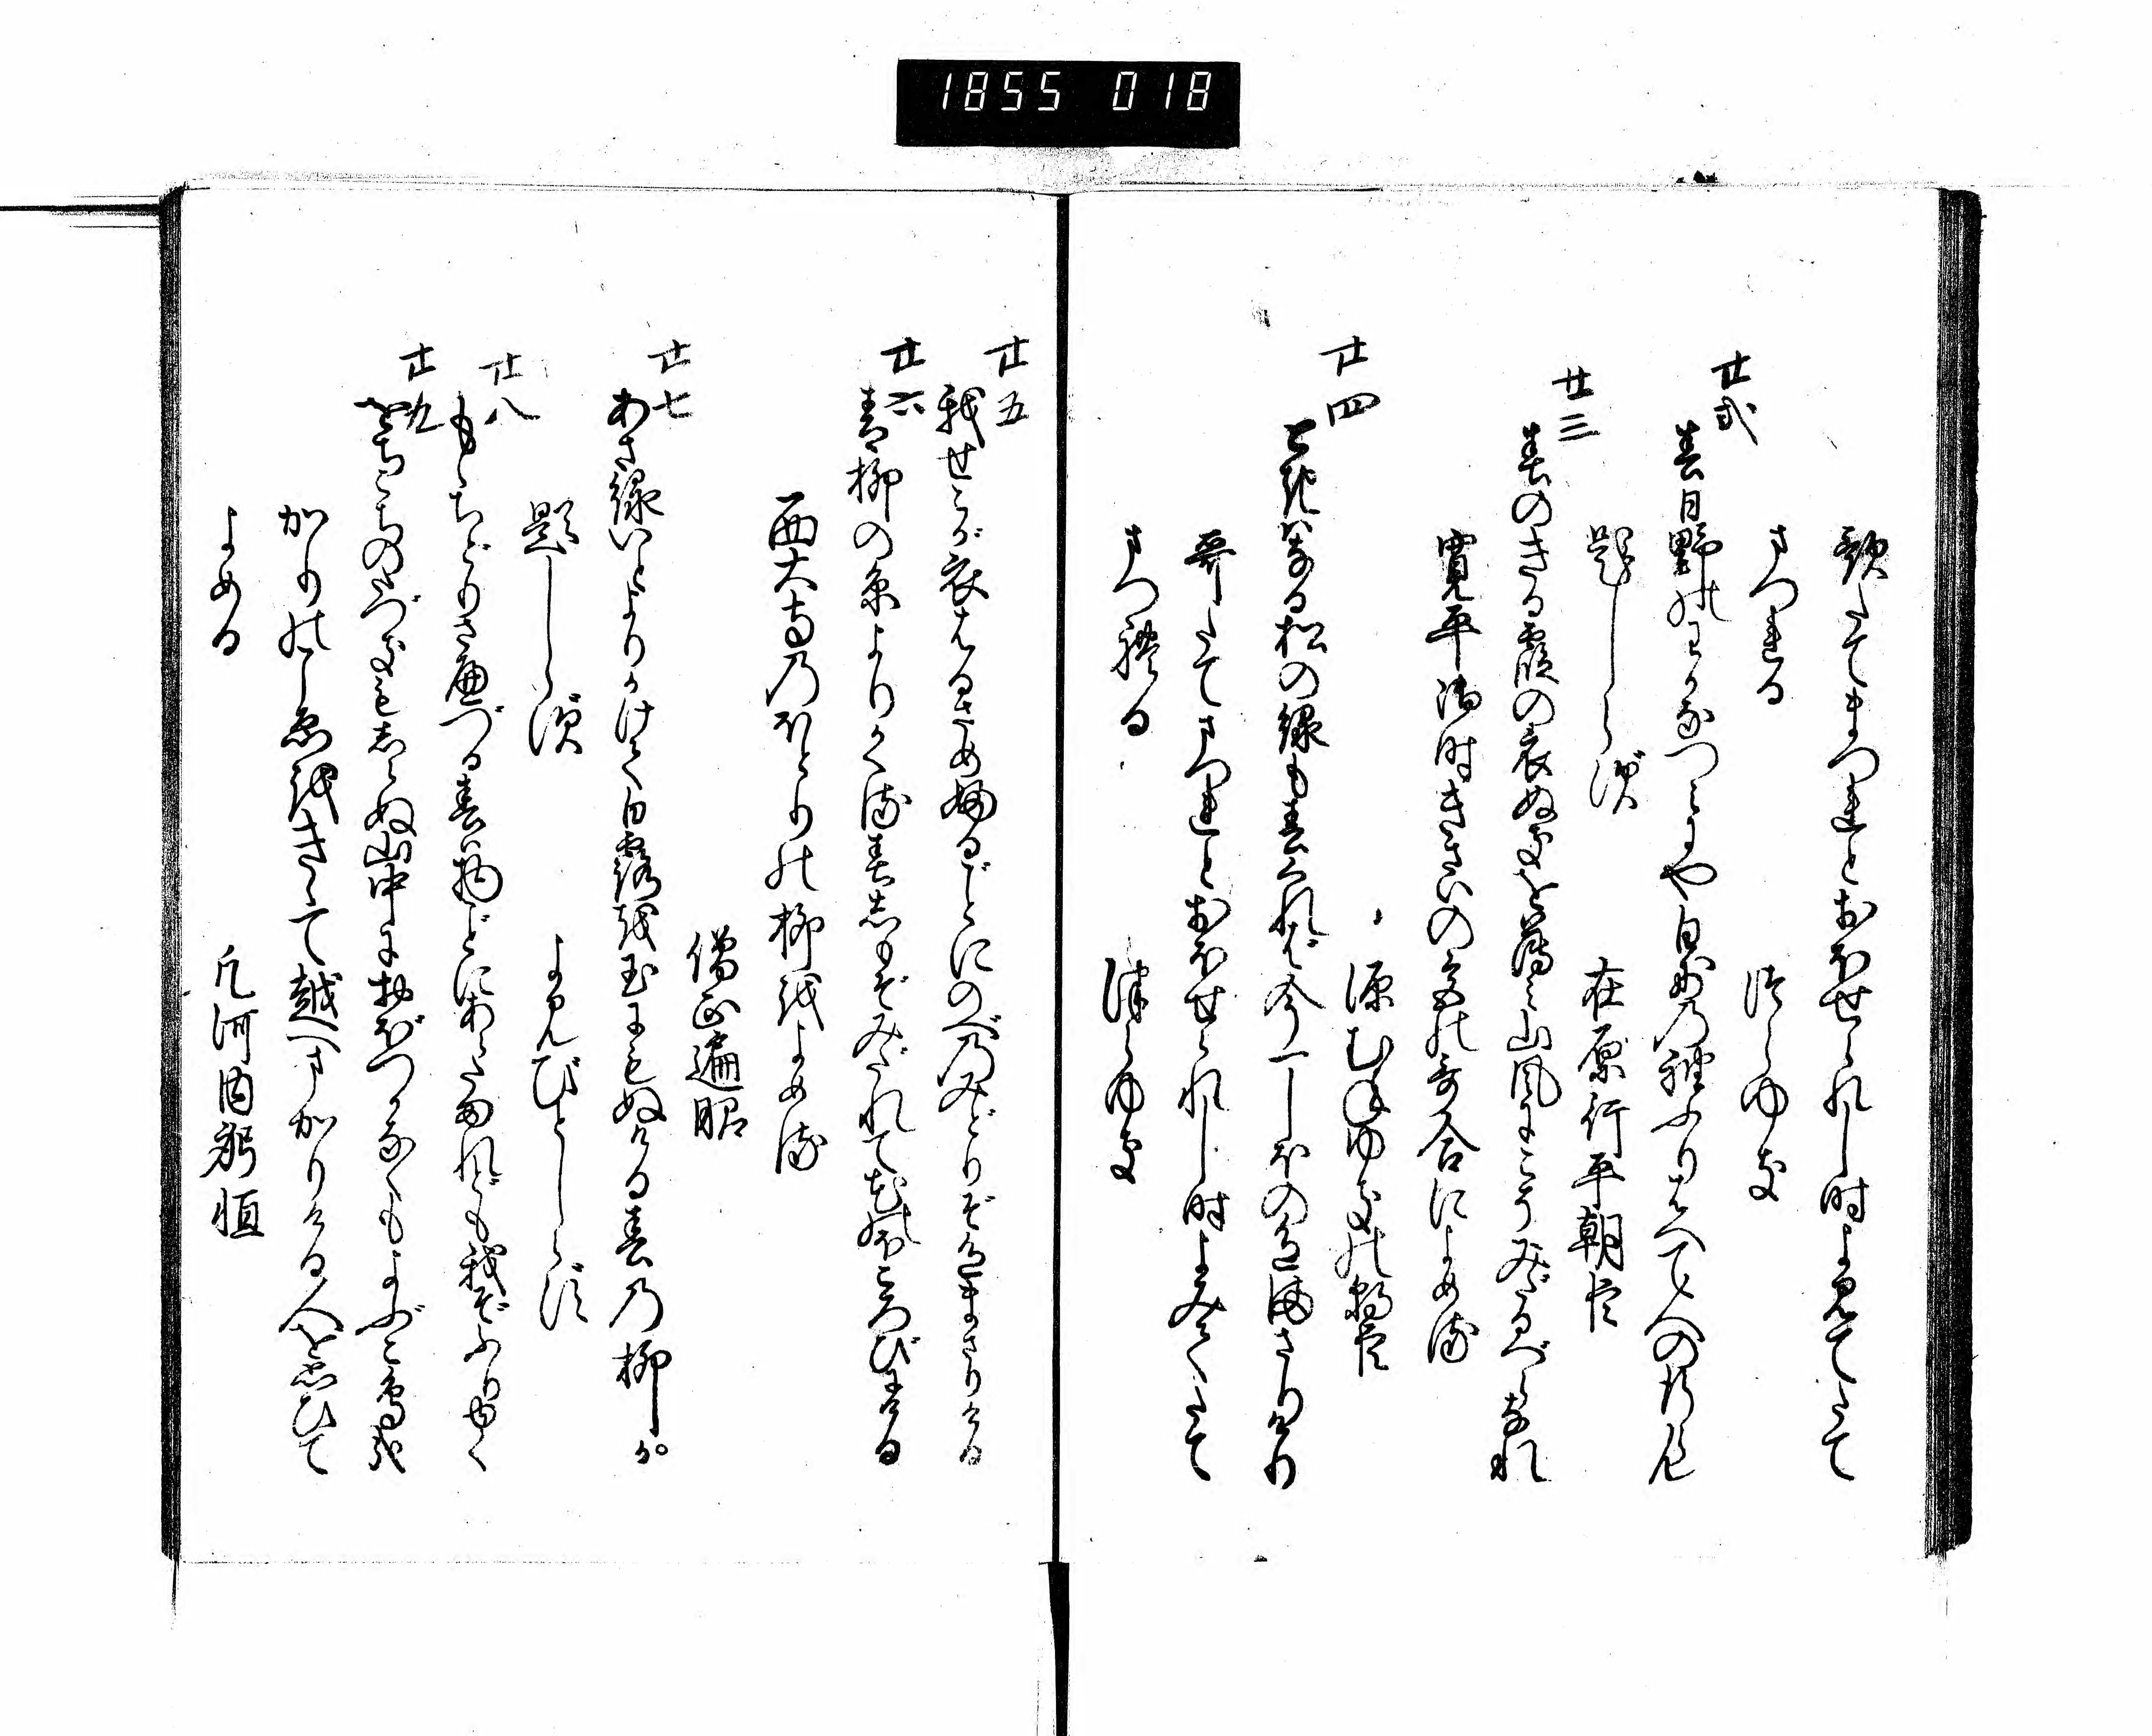 1855 018
歌たてまつれとおほせられし時よみてたて
まつれる つらゆき
廿弐
春日野のわかなつみにや白妙の袖ふりはへて人の行らん
題しらず 在原行平朝臣
廿三
春のきる霞の衣ぬきを薄み山風にこそみだるべらなれ
寛平御時きさいの宮の哥合によめる
源むねゆきの朝臣
廿四
ときはなる松の緑も春くれば今一しほの色まさりけり
哥たてまつれとおほせられし時よみてたて
まつれる つらゆき
廿五
我せこが衣はるさめふるごとにのべのみどりぞ色まさりける
廿六
青柳の糸よりかくる春しもぞみだれて花のほころびにける
西大寺のほとりの柳をよめる
僧正遍昭
廿七
あさ緑いとよりかけて白露を玉にもぬける春の柳か
題しらず よみびとしらず
廿八
もゝちどりさへづる春は物ごとにあらたまれども我ぞふりゆく
廿九
をちこちのたづきもしらぬ山中におぼつかなくもよぶこ鳥哉
かりのこゑをきゝて越へまかりける人を思ひて
よめる 凡河内躬恒